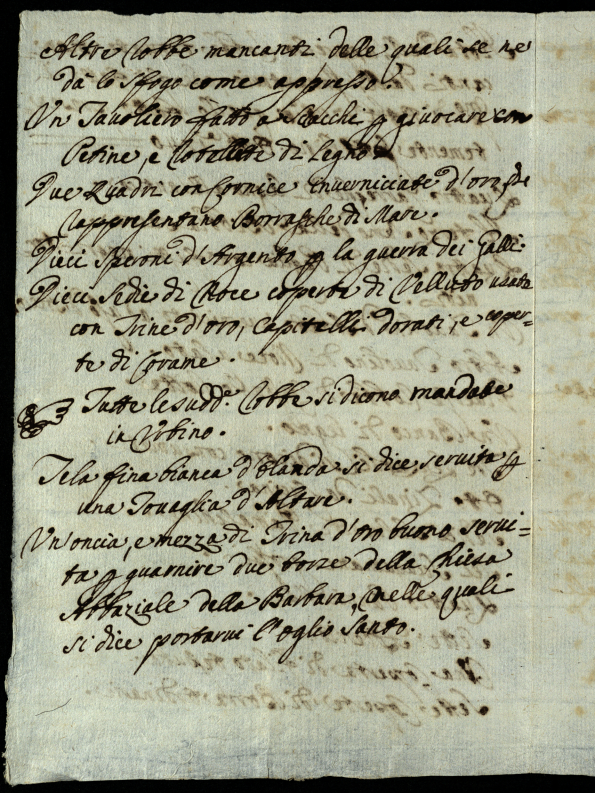 Altre Robbe mancanti delle quali se ne
dà lo sfogo come appresso.
Un Tavoliero fatto a Scacchi p giuocare con
Petine, e Rotellette di Legno
Due Quadri con Cornice inverniciate d'oro, che
rappresentano Borrasche di Mare.
Dieci Speroni d'Argento p la guerra dei Galli.
Dieci Sedie di Noce coperte di Velluto usato
con Trine d'oro, Capitelli dorati, e coper=
te di Corame.
Tutte le sudd.e Robbe si dicono mandate
in Urbino.
Tela fina bianca d'Olanda si dice, servita p
una Tovaglia d'Altare.
Un'oncia, e mezza di Trina d'oro buono servi=
ta p guarnire due borse della Chiesa
Abbaziale della Barbara, nelle quali
si dice portarvi l'oglio Santo.